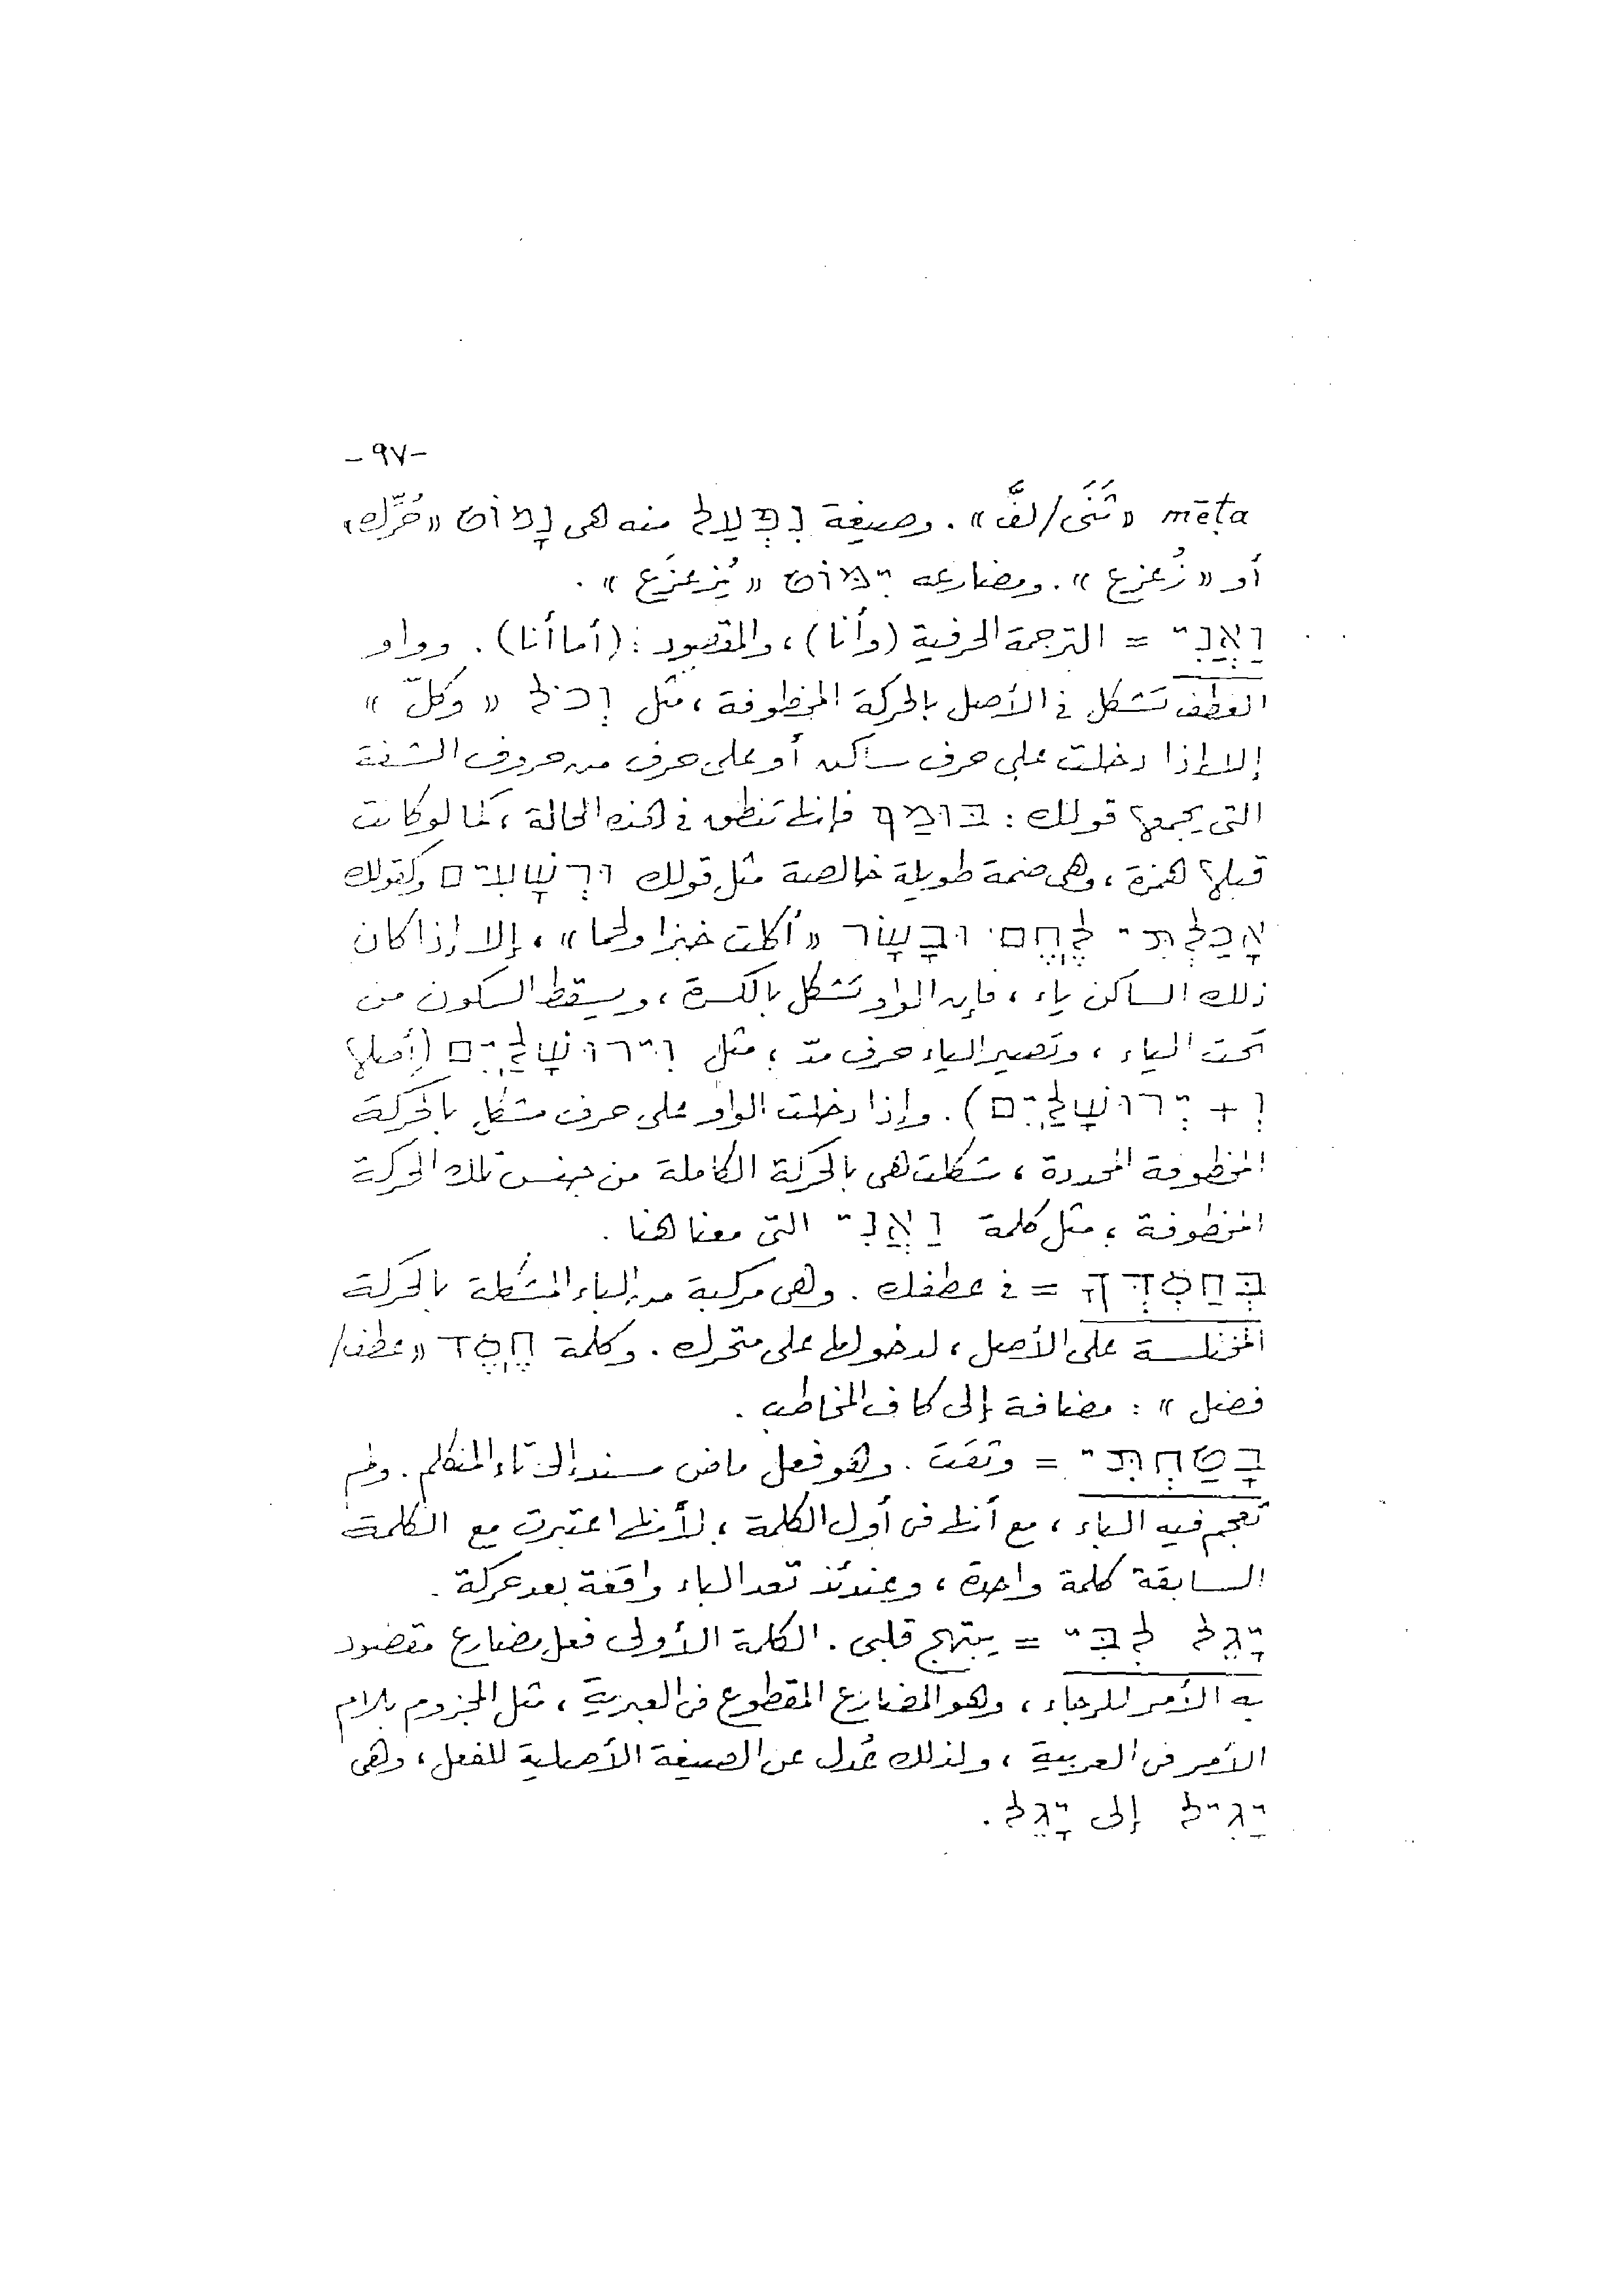 -٩٧-
mēṭa «ثَنَى/لفَّ». وصيغة נִפְעַל منه هى נָמוֹט «حُرِّك»
أو «زُعزع». ومضارعه יִמּוֹט «يُزعزَع».
וַאֲנִי = الترجمة الحرفية (وأنا)، والمقصود: (أما أنا). وواو
العطف تشكل فى الأصل بالحركة المخطوفة، مثل וְכֹל «وكلّ»
إلا إذا دخلت على حرف ساكن أو على حرف من حروف الشفة
التى يجمعها قولك: בומף فإنها تنطق فى هذه الحالة، كما لو كانت
قبلها همزة، وهى ضمة طويلة خالصة مثل قولك וּרְשָׁעִים وكقولك
אָכַלְתִּי לֶחֶם וּבָשָׂר «أكلت خبزا ولحما»، إلا إذا كان
ذلك الساكن ياء، فإن الواو تشكل بالكسرة، ويسقط السكون من
تحت الياء، وتصير الياء حرف مدّ، مثل וִירוּשָׁלַיִם (أصلها
וְ + יְרוּשָׁלַיִם). وإذا دخلت الواو على حرف مشكل بالحركة
المخطوفة المحددة، شكلت هى بالحركة الكاملة من جنس تلك الحركة
المخطوفة، مثل كلمة וַאֲנִי التى معنا هنا.
בְּחַסְדְּךָ = فى عطفك. وهى مركبة من الباء المشكلة بالحركة
المختلسة على الأصل، لدخولها على متحرك. وكلمة חֶסֶד «عطف/
فضل»: مضافة إلى كاف المخاطب.
בָטַחְתִּי = وثقت. وهو فعل ماض مسند إلى تاء المتكلم. ولم
تعجم فيه الباء، مع أنها فى أول الكلمة، لأنها اعتبرت مع الكلمة
السابقة كلمة واحدة، وعندئذ تعد الباء واقعة بعد حركة.
יָגֵל לִבִּי = يبتهج قلبى. الكلمة الأولى فعل مضارع مقصود
به الأمر للرجاء، وهو المضارع المقطوع فى العبرية، مثل المجزوم بلام
الأمر فى العربية، ولذلك عُدل عن الصيغة الأصلية للفعل، وهى
יַגִיל إلى יָגֵל.